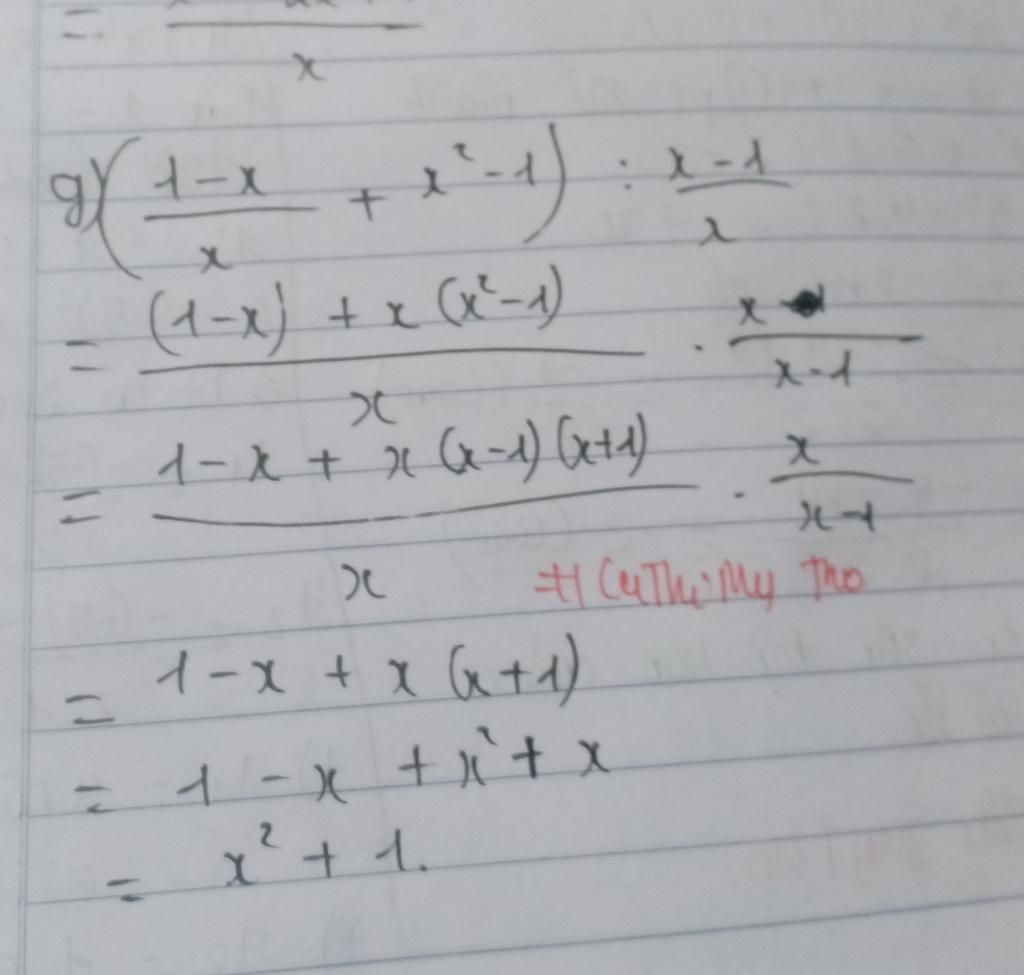 = x
g) ( (1-x)/x + x² - 1 ) : (x-1)/x
= ((1-x) + x(x²-1))/x . x/(x-1)
= (1-x + x(x-1)(x+1))/x . x/(x-1)
= 1-x + x(x+1)
= 1 - x + x² + x
= x² + 1.